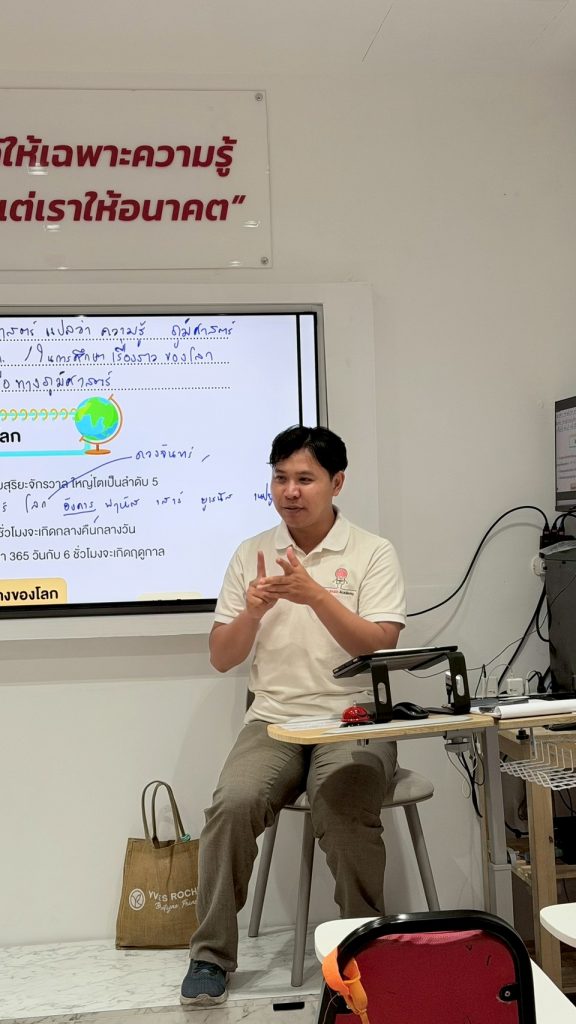 ให้เฉพาะความรู้
แต่เราให้อนาคต”
าสตร์ แปลว่า ความรู้ ภูมิศาสตร์
ในการศึกษา เรื่องราว ของโลก
ทางภูมิศาสตร์
โลก
ดวงจันทร์
สุริยะจักรวาล ใหญ่โตเป็นลำดับ 5
โลก อังคาร พฤหัส เสาร์ ยูเรนัส
ชั่วโมงจะเกิดกลางคืนกลางวัน
365 วันกับ 6 ชั่วโมงจะเกิดฤดูกาล
างของโลก
YVES ROCH